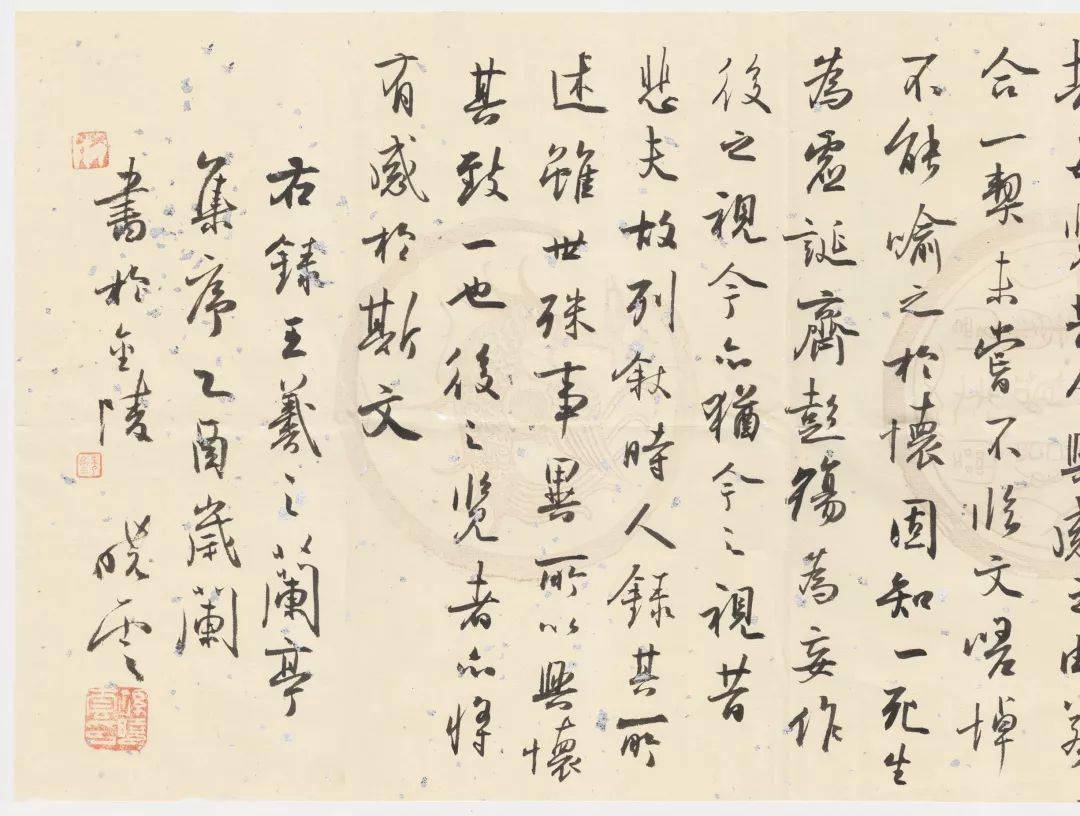 每覽昔人興感之由若
合一契未嘗不臨文嗟悼
不能喻之於懷固知一死生
為虛誕齊彭殤為妄作
後之視今亦猶今之視昔
悲夫故列敘時人錄其所
述雖世殊事異所以興懷
其致一也後之覽者亦將
有感於斯文
右錄王羲之蘭亭
集序乙酉歲蘭
書於金陵 曉雲